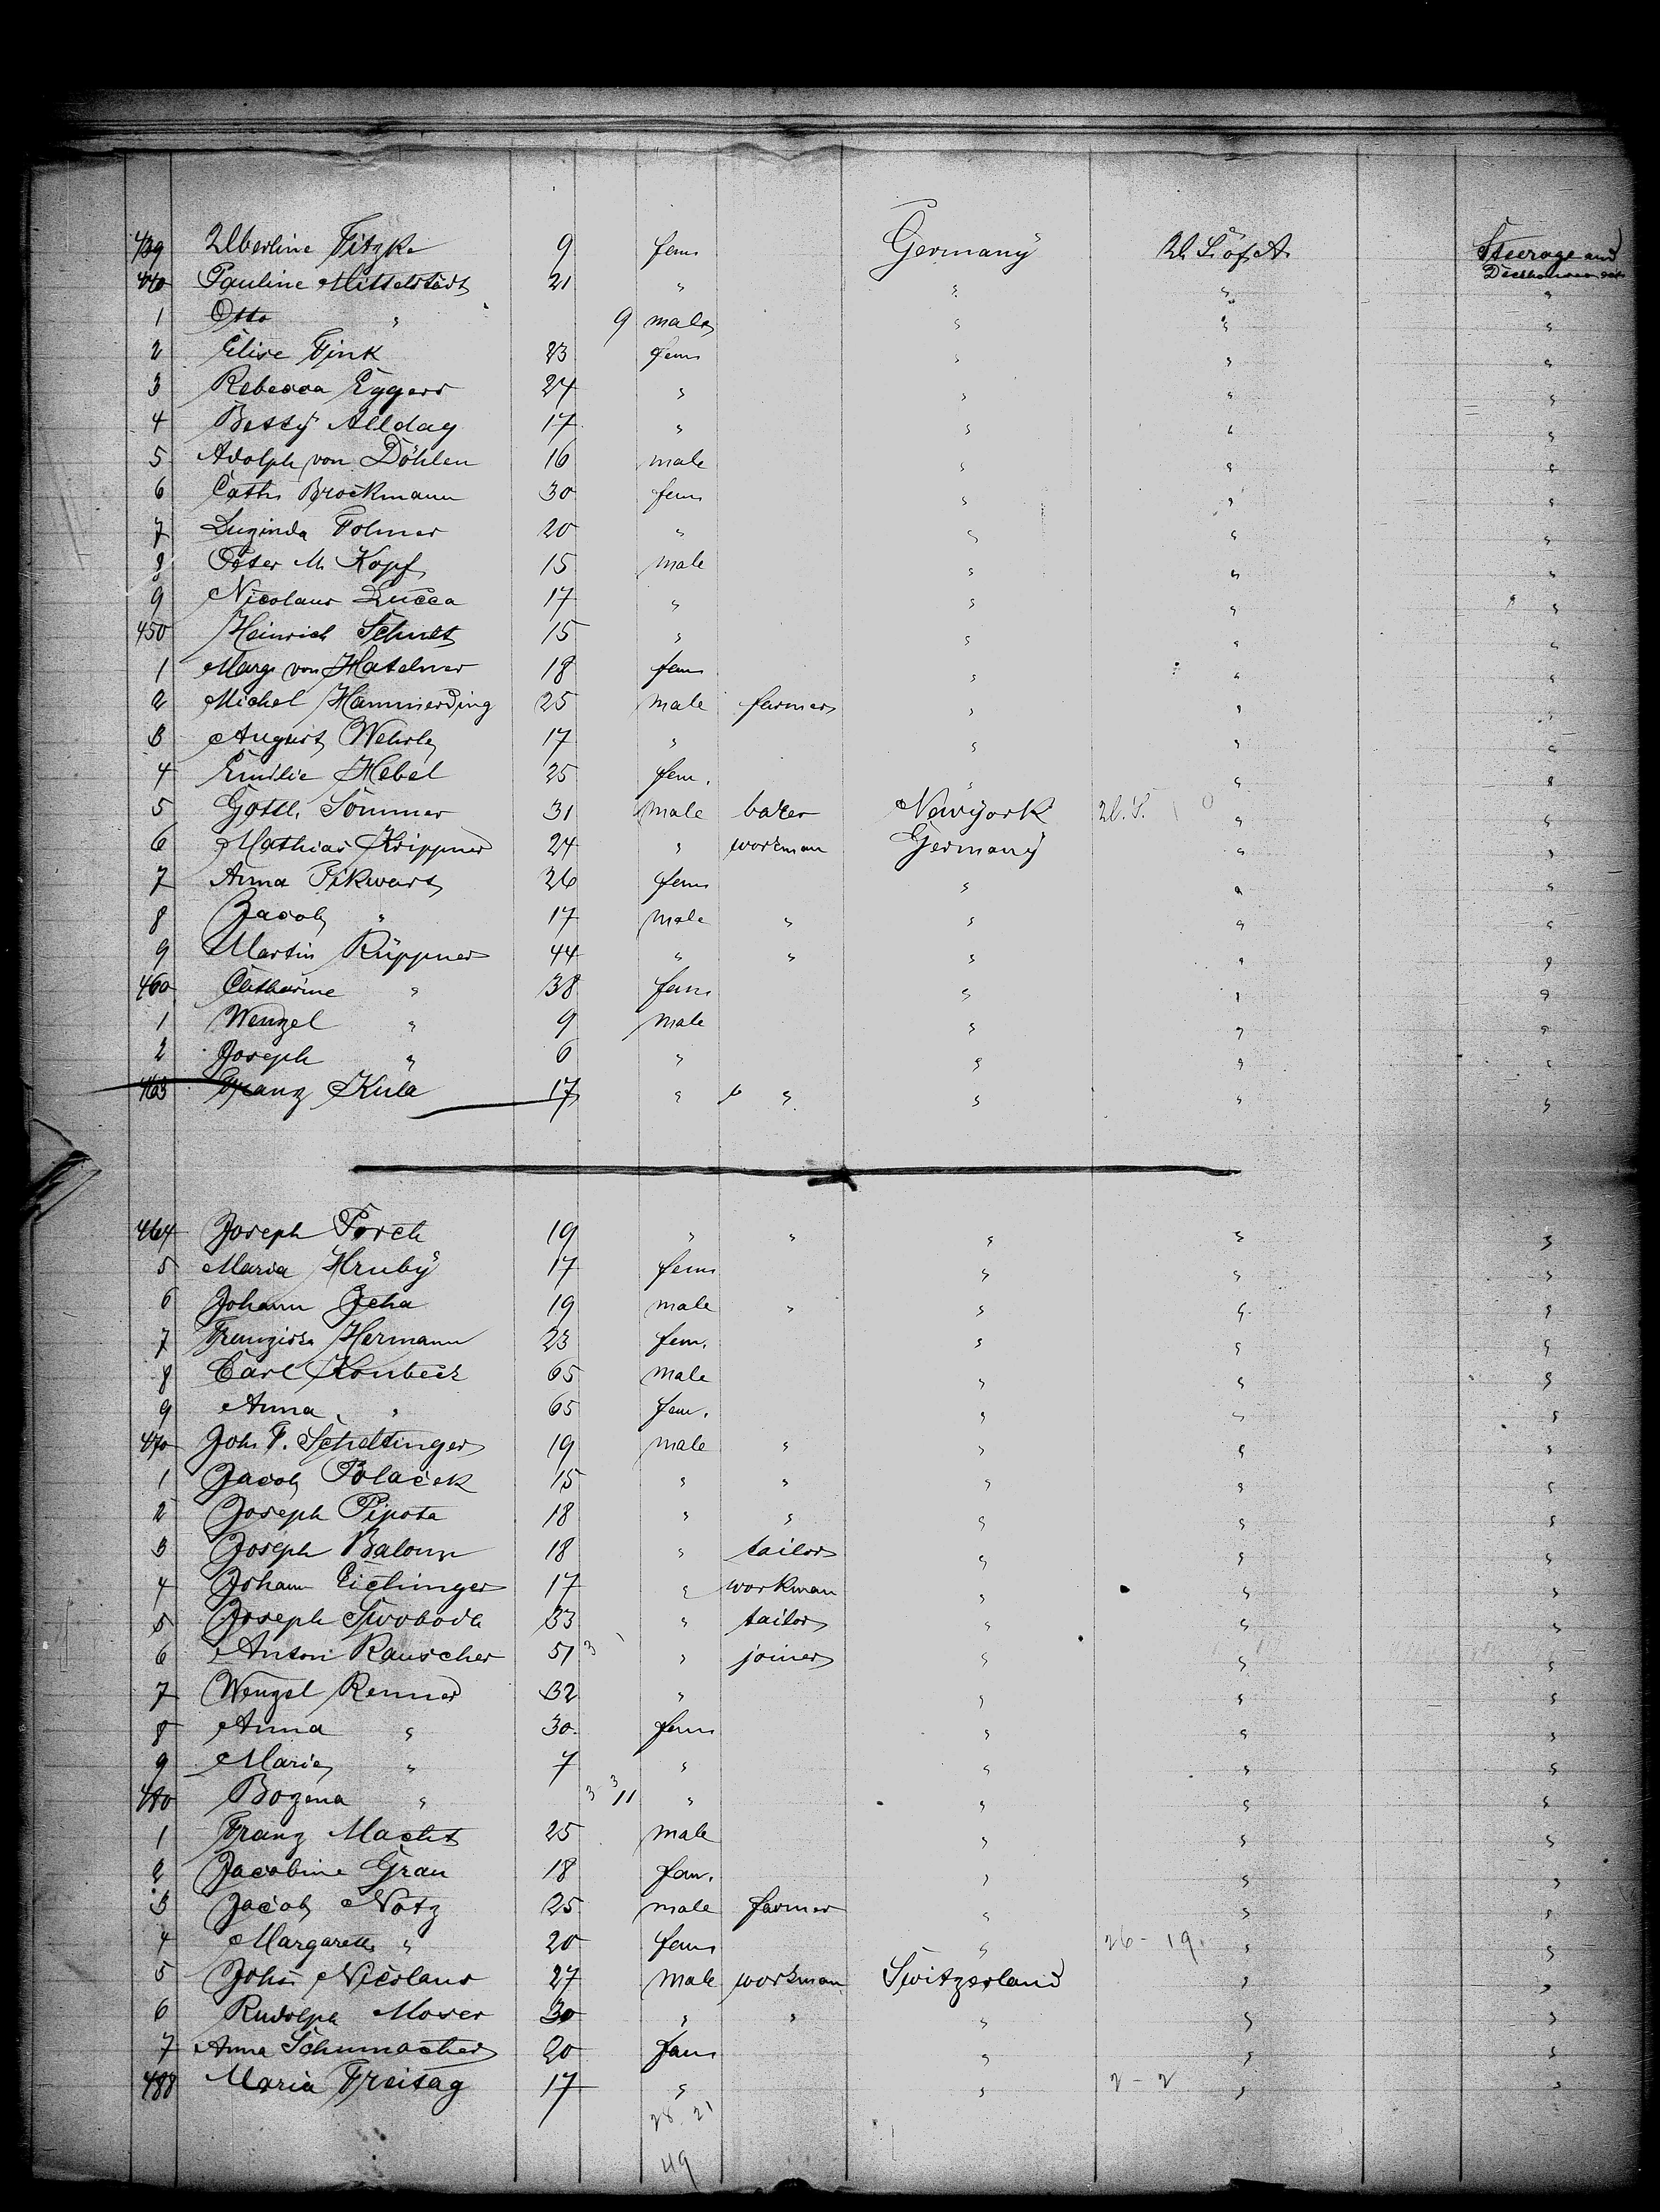 439 Alberline Titzke 9 fem Germany U. S. of A. Steerage and
440 Pauline Mittelstädt 21 " " " "
1 Otto " 9 male " " "
2 Elise Fink 23 fem " " "
3 Rebecca Eggers 24 " " " "
4 Betty Allday 17 " " " "
5 Adolph von Döhlen 16 male " " "
6 Cath. Brockmann 30 fem " " "
7 Luzinda Folmer 20 " " " "
8 Peter M. Kopf 15 male " " "
9 Nicolaus Lucca 17 " " " "
450 Heinrich Schult 15 " " " "
1 Marg. von Hatelmer 18 fem " " "
2 Michel Hammerding 25 male farmer " " "
3 August Wehrle 17 " " " "
4 Emilie Hebel 25 fem. " " "
5 Gottl. Sommer 31 male baker Newyork U. S. " "
6 Mathias Krippner 24 " workman Germany " "
7 Anna Pikwart 26 fem " " "
8 Jacob " 17 male " " " "
9 Martin Rüppner 44 " " " " "
460 Catharine " 38 fem " " "
1 Wenzel " 9 male " " "
2 Joseph " 6 " " " "
463 Franz Kula 17 " " " " "
464 Joseph Porch 19 " " " " "
5 Maria Hruby 17 fem " " "
6 Johann Jcha 19 male " " " "
7 Franziska Hermann 23 fem. " " "
8 Carl Konbeck 65 male " " "
9 Anna " 65 fem. " " "
470 Joh. F. Scheltinger 19 male " " " "
1 Jacob Polacek 15 " " " " "
2 Joseph Pipota 18 " " " " "
3 Joseph Baloun 18 " tailor " " "
4 Johann Eichinger 17 " workman " " "
5 Joseph Swoboda 33 " tailor " " "
6 Anton Rauscher 51 3 " joiner " " "
7 Wenzel Renner 32 " " " "
8 Anna " 30 fem " " "
9 Marie " 7 " " " "
480 Bozena " 3 3 11 " " " "
1 Franz Macht 25 male " " "
2 Jacobine Grau 18 fem. " " "
3 Jacob Notz 25 male farmer " " "
4 Margareth " 20 fem " 26 - 19. " "
5 John Nicolaus 27 male workman Switzerland " "
6 Rudolph Moser 30 " " " " "
7 Anna Schumacher 20 fem " " "
488 Maria Freitag 17 " " 2 - 2 " "
28. 21
49